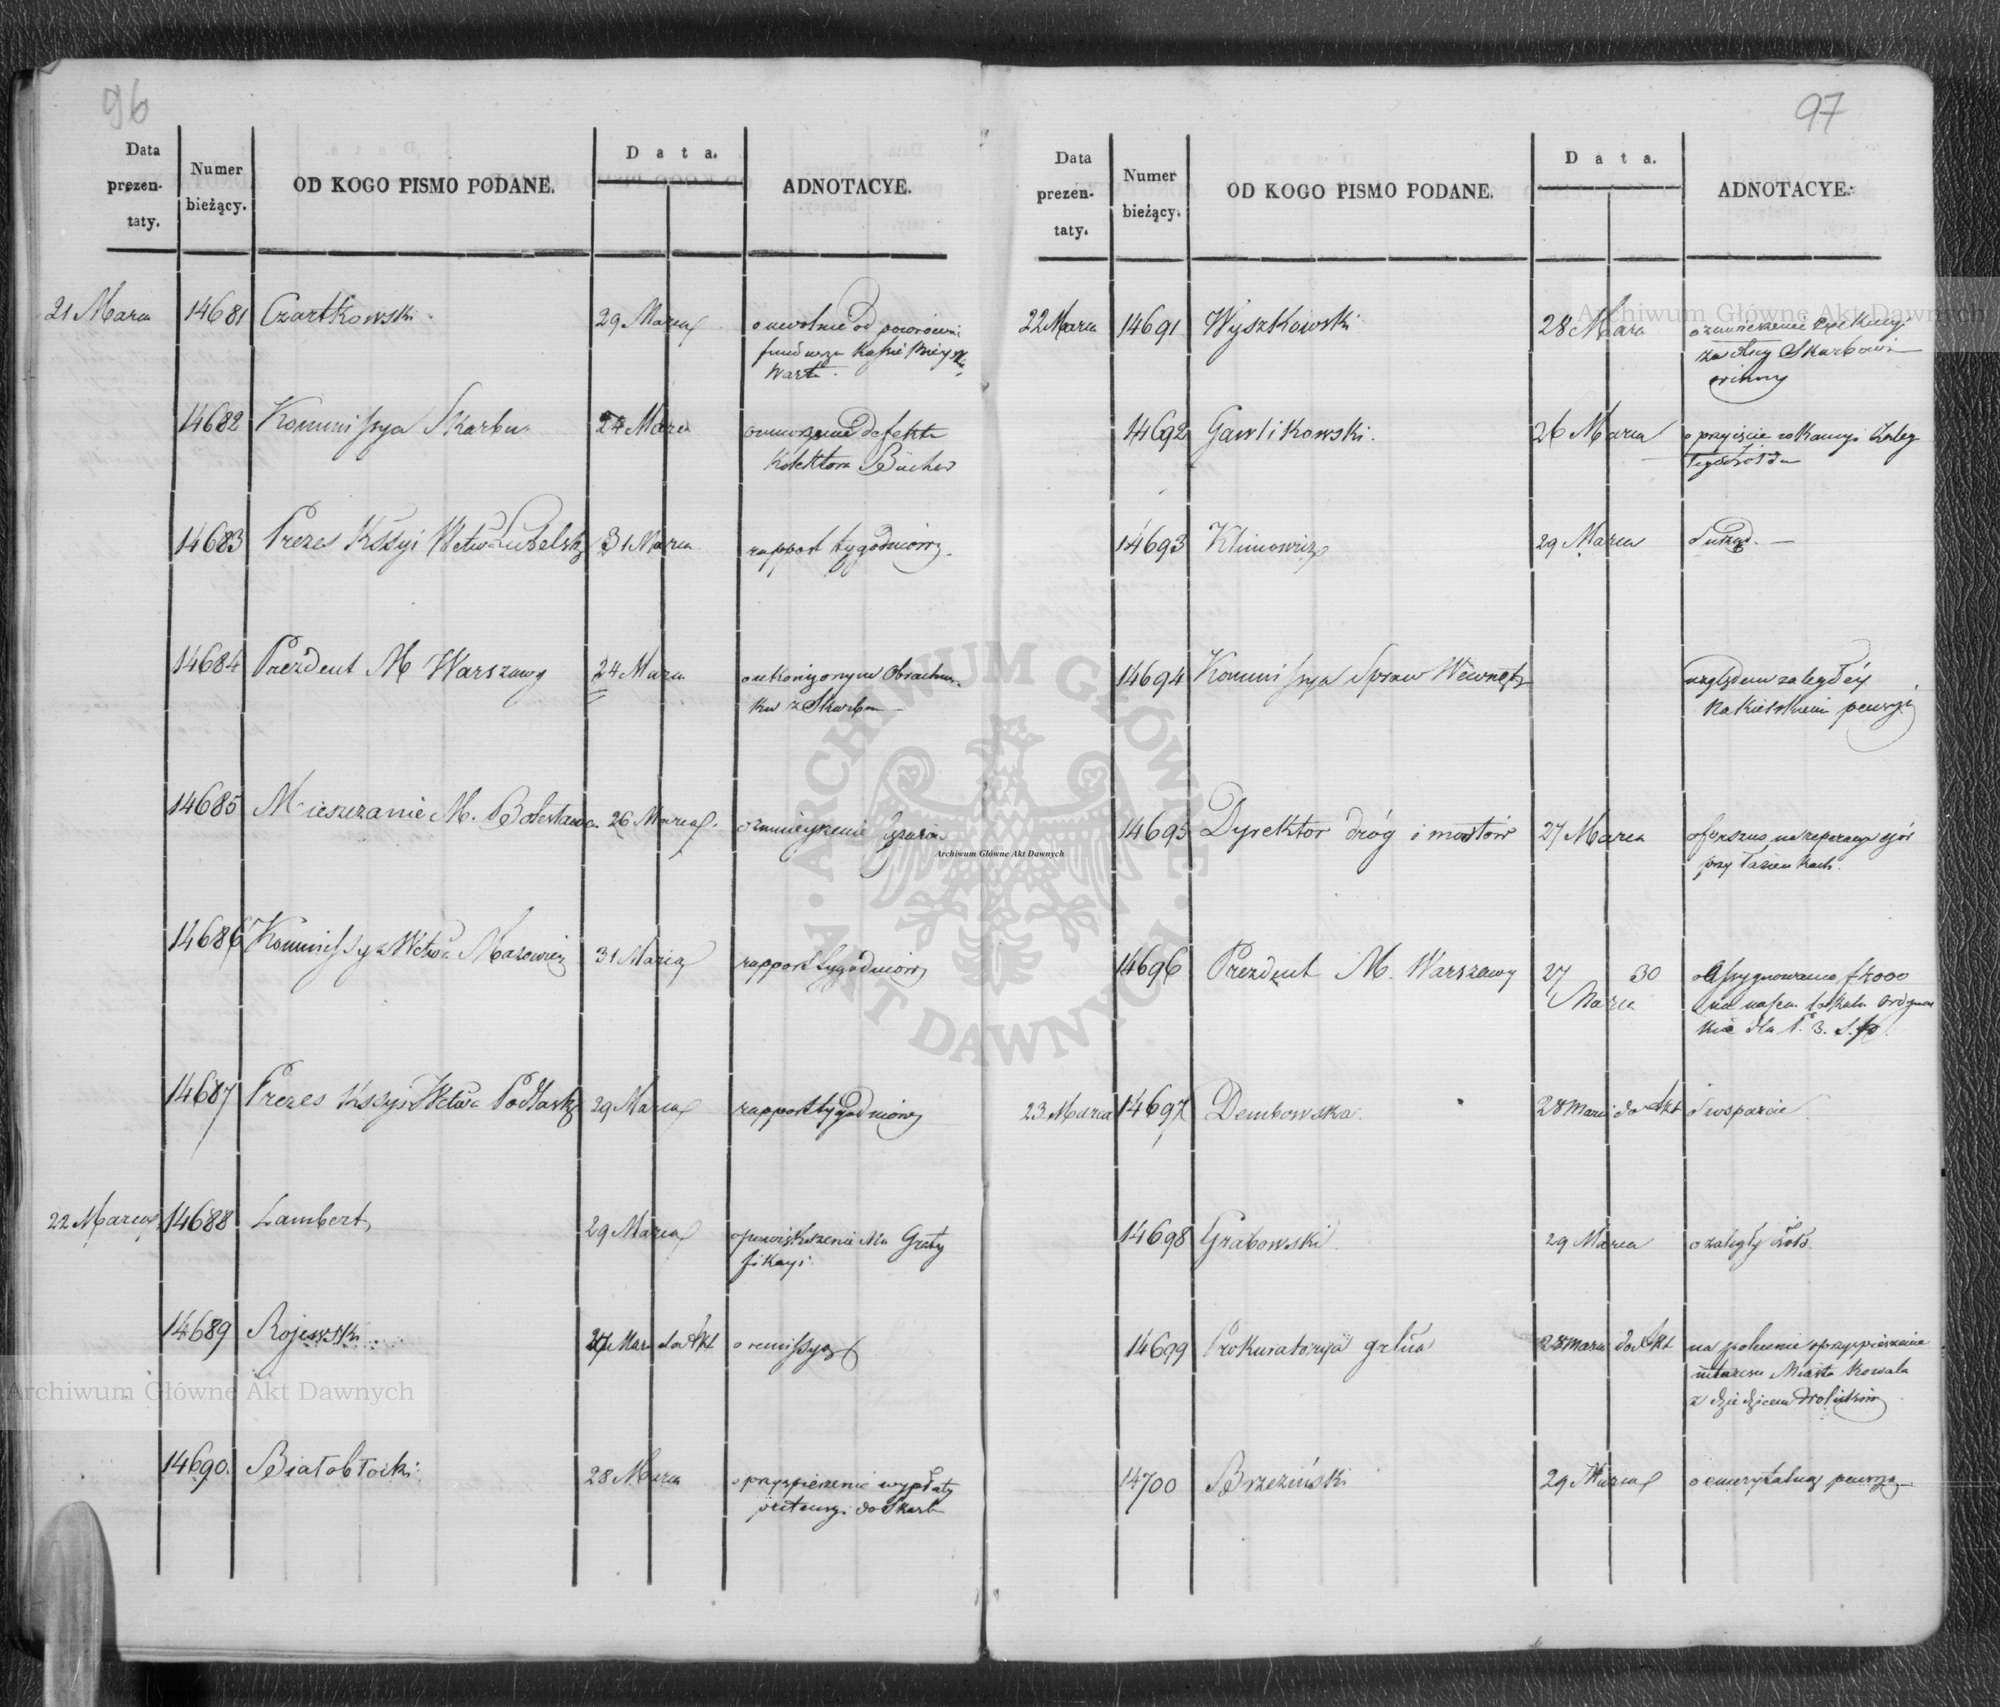 96
Data prezentaty. Numer bieżący. OD KOGO PISMO PODANE. Data. ADNOTACYE.
21 Marca 14681 Czartkowski 29 Marca o uwolnie od powrówni
funduszu Kassie Mieysk
Warta.
14682 Kommissya Skarbu 24 Marca o umorzenie defektu
Kolektora Bücher
14683 Prezes Kssyi Wctwa Lubelsk 31 Marca rapport tygodniowy.
14684 Prezdent M Warszawy 24 Marca o ukończonym Obrachun-
ku z Skarbem
14685 Mieszczanie M. Bolesława 26 Marca o
14686 Kommissya Wctwa Mazowiec 31 Marca rapport tygodniowy
14687 Prezes Kssyi Wctwa Podlask 29 Marca rapport tygodniowy
22 Marca 14688 Lambert 29 Marca o powiększenie Mu Graty
fikacyi.
14689 Rojewski 27 Marc do Akt o remissyą
14690. Białobłocki 28 Marca o przyspieszenie wypłaty
pretensyi do Skarb
97
Data prezentaty. Numer bieżący. OD KOGO PISMO PODANE. Data. ADNOTACYE.
22 Marca 14691 Wyszkowski 28 Marc o zwrócenie
Skarbowi
winny
14692 Gawlikowski. 26 Marca o przyjęcie
14693 Klimowicz 29 Marca o urząd.
14694 Kommissya Spraw Wewnętz względem zaległéy
pensyi
14695 Dyrektor dróg i mostów 27 Marca o forszus na reperacye
przy Łazienkach.
14696 Prezdent M. Warszawy 27 30 o Assygnowanie f
Marca na
kie dla P. 3.
23 Marca 14697 Dembowska. 28 Marc do Akt o wsparcie.
14698 Grabowski 29 Marca o zaległy żołd.
14699 Prokuratorya grlna 28 Marca do Akt na polecenie o przyspieszenie
interesu Miasta Kowala
z dziedzicem
14700 Brzeziński 29 Marca o emerytalną pensyą
Archiwum Główne Akt Dawnych
Archiwum Główne Akt Dawnych
Archiwum Główne Akt Dawnych
ARCHIWUM GŁÓWNE · AKT DAWNYCH ·